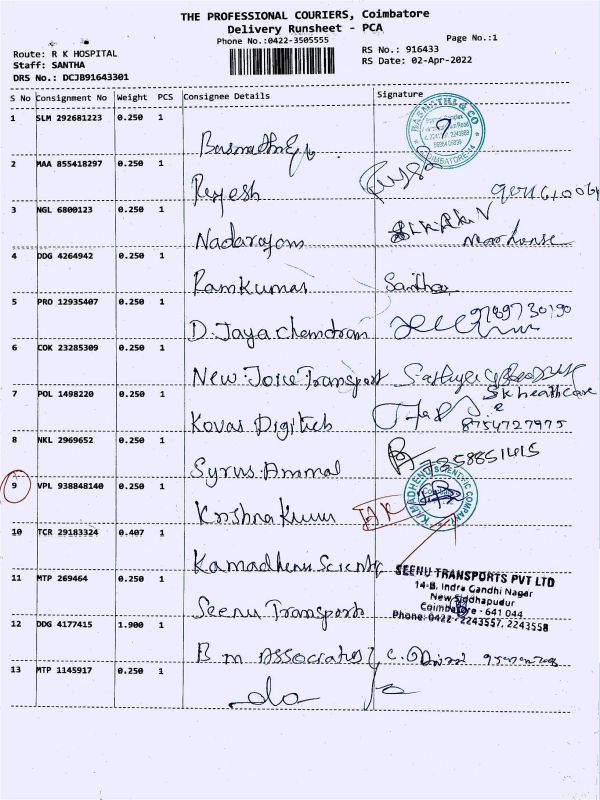 THE PROFESSIONAL COURIERS, Coimbatore
Delivery Runsheet - PCA
Phone No.:0422-3505555
Page No.:1
Route: R K HOSPITAL
RS No.: 916433
Staff: SANTHA
RS Date: 02-Apr-2022
DRS No.: DCJB91643301
S No Consignment No Weight PCS Consignee Details Signature
1 SLM 292681223 0.250 1
2 MAA 855418297 0.250 1
Rajesh
3 NGL 6800123 0.250 1
Nadarajans
4 DDG 4264942 0.250 1
Ramkumar Santhosh
5 PRO 12935407 0.250 1
D. Jaya Chandran 9789730190
6 COK 23285309 0.250 1
New Joice Transport Sathya
7 POL 1498220 0.250 1
SK healthcare
Kovai Digitech 8754727975
8 NKL 2969652 0.250 1
Syrus Ammal 7358851415
9 VPL 938848140 0.250 1
KAMADHENU SCIENTIFIC COMPANY
Krishna Kumar
10 TCR 29183324 0.407 1
Kamadhenu Scientific
11 MTP 269464 0.250 1
SEENU TRANSPORTS PVT LTD
14-B, Indra Gandhi Nagar
New Siddhapudur
Coimbatore - 641 044
Phone: 0422 - 2243557, 2243558
Seenu Transports
12 DDG 4177415 1.900 1
B m Associates
13 MTP 1145917 0.250 1
do